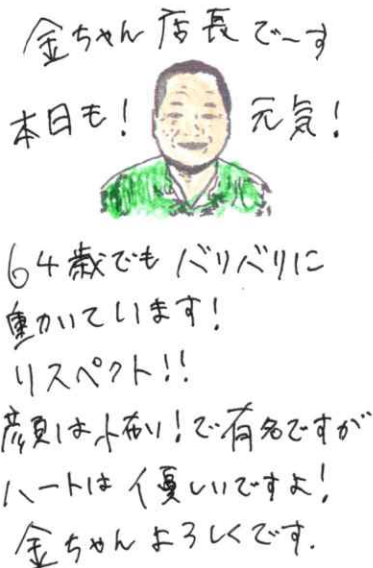 金ちゃん店長で〜す
本日も! 元気!
64歳でもバリバリに
働いています!
リスペクト!!
顔は怖い!で有名ですが
ハートは優しいですよ!
金ちゃんよろしくです.